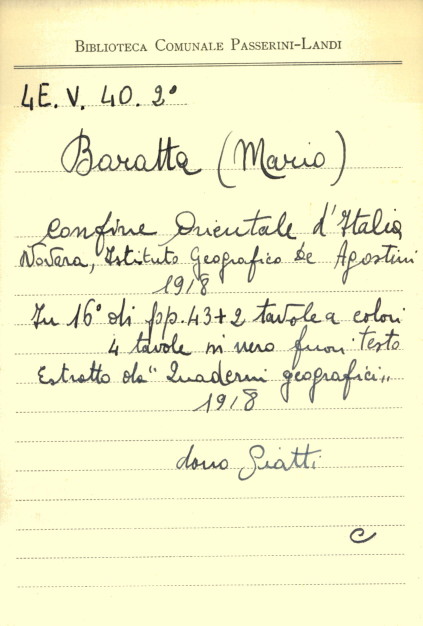 BIBLIOTECA COMUNALE PASSERINI-LANDI
4E. V. 40. 2°
Baratta (Mario)
Confine Orientale d'Italia
Novara, Istituto Geografico De Agostini
1918
In 16° di pp. 43+2 tavole a colori
4 tavole in nero fuori testo
Estratto da "Quaderni geografici„
1918
dono Giatti
C